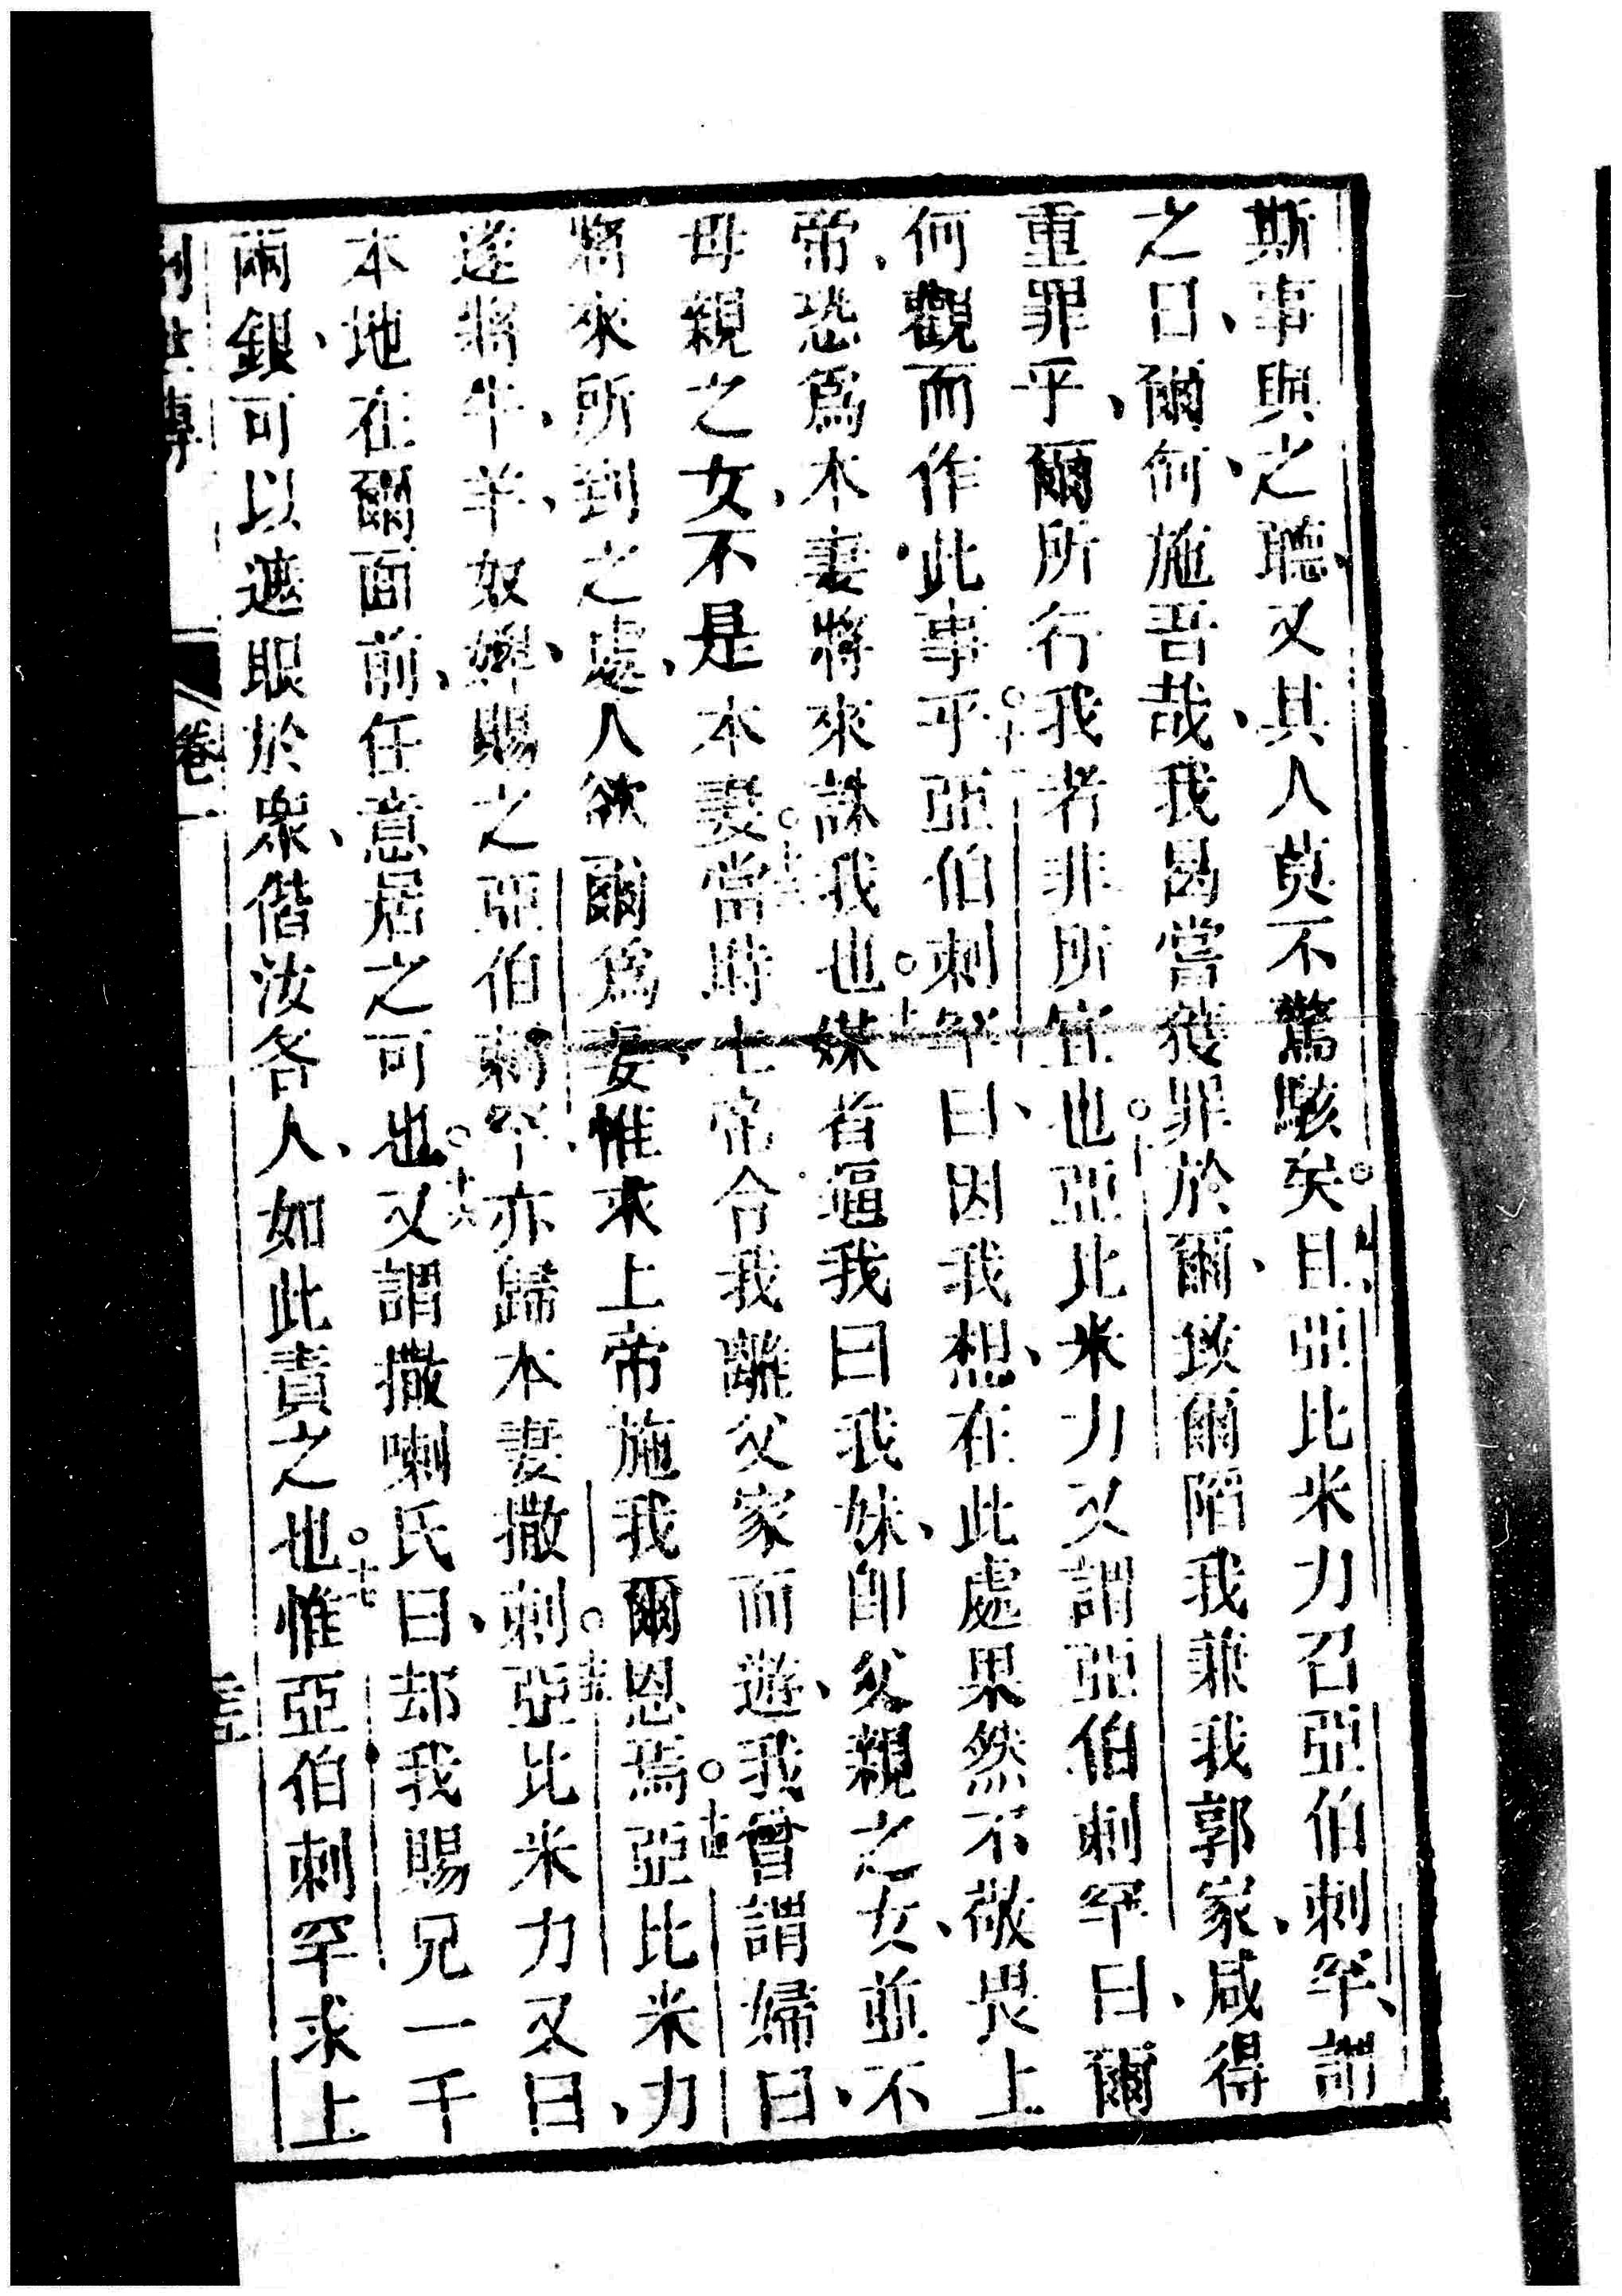 斯事與之聽、又其人莫不驚駭矣。九且亞比米力召亞伯刺罕、謂
之曰、爾何施吾哉、我曷當獲罪於爾、致爾陷我兼我郭家、咸得
重罪乎、爾所行我者非所宜也。十亞比米力又謂亞伯刺罕曰、爾
何觀而作此事乎。十一亞伯刺罕曰、因我想、在此處果然不敬畏上
帝、恐爲本妻將來誅我也。十二媒者逼我曰我妹、卽父親之女、並不
母親之女、不是本妻。十三當時上帝令我離父家而遊、我曾謂婦曰、
將來所到之處、人欲爾爲妻、惟求上帝施我爾恩焉。十四亞比米力
遂將牛、羊、奴婢、賜之亞伯刺罕、亦歸本妻撒刺。十五亞比米力又曰、
本地在爾面前、任意居之可也。十六又謂撒喇氏曰、却我賜兄一千
兩銀、可以遮眼於衆、偕汝各人、如此責之也。十七惟亞伯刺罕求上
卷一